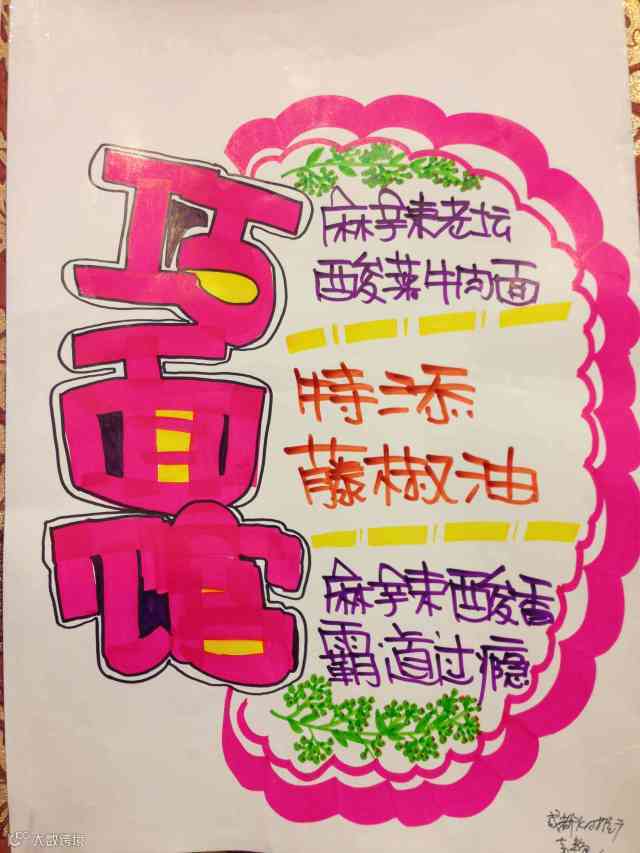 巧面馆
麻辣老坛
酸菜牛肉面
特添
藤椒油
麻辣酸香
霸道过瘾
大数跨境